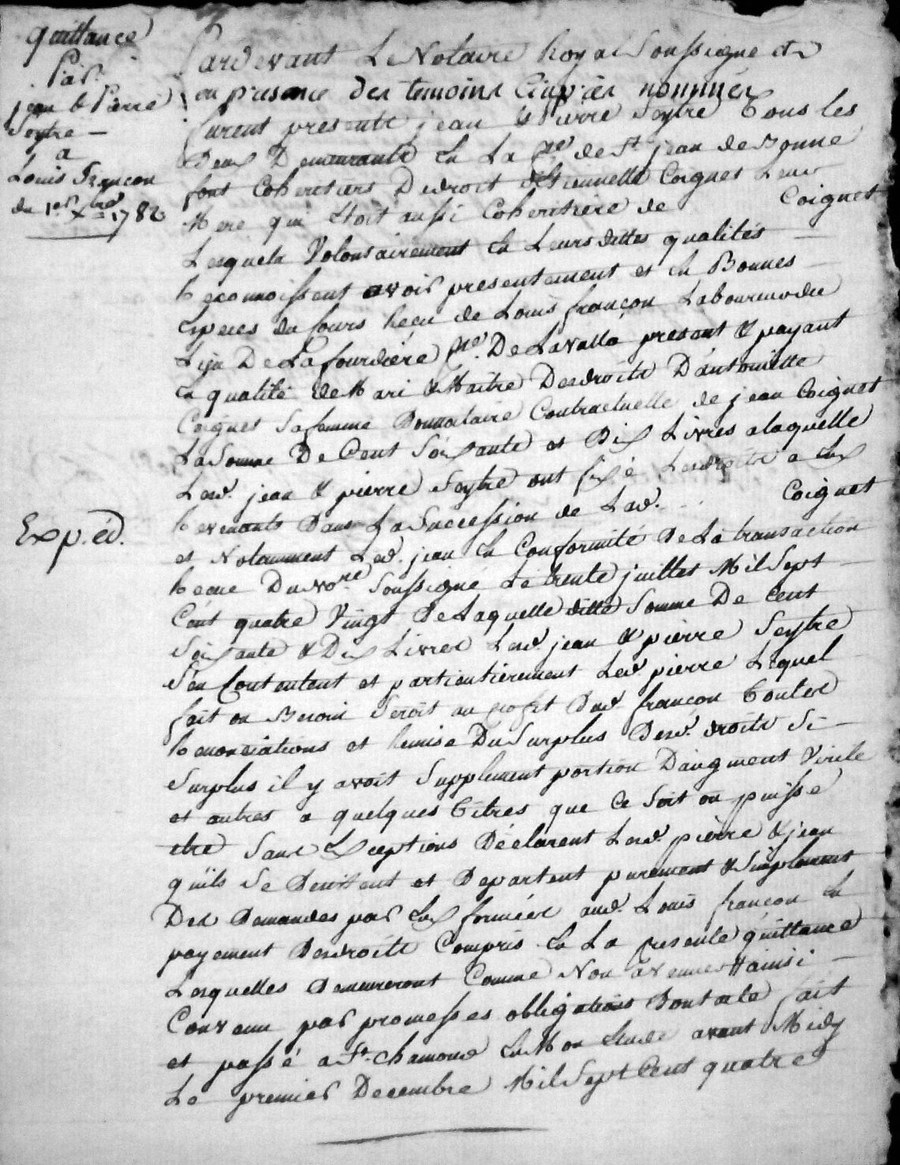 quittance
Par
jean & Pierre
Seytre
a
Louis françon
du 1er Xbre 1782
Pardevant Le Notaire Royal Soussigné et
en presence des temoins Ciaprès nommés
furent presents jean & Pierre Seytre Tous les
Deux Demeurants En La pse de St jean de Bonne
font Coheritiers De droit Coignet Leur
Mere qui Etoit aussi Coheritiere de Coignet
Lesquels Volontairement En Leursdittes qualités
Reconnoissent avoir presentement et En Bonnes
Especes du Cours Reçu de Louis françon Laboureur du
Lieu De La fourdiere pse De Lavalla present & payant
En qualité de Mari & Maitre Des droits D'antoinette
Coignet Sa femme Donnataire Contractuelle de jean Coignet
La Somme De Cent Soixante et Dix Livres a laquelle
Lesd. jean & pierre Seytre ont fixé Les droits a Eux
Revenants Dans La Succession de Lad. Coignet
et Notamment Led. jean En Conformité De La transaction
Recue Du Nore Soussigné Le trente juillet Mil Sept
Cent quatre Vingt De Laquelle ditte Somme De Cent
Soixante & Dix Livres Lesd. jean & pierre Seytre
S'en Contentent et particulièrement Led. pierre Lequel
fait en Besoin Seroit au profit Dud. françon Toutes
Renonciations et Remise Du Surplus Desd. droits Si
Surplus il y avoit Supplement portion D'augment Virile
et autres a quelques titres que ce Soit ou puisse
etre Sans Exceptions Déclarent Lesd. pierre & jean
quils Se Desistent et Departent purement & Simplement
Des Demandes par Eux formées aud. Louis françon En
payement Des droits Compris En La presente quittance
Lesquelles Demeureront Comme Non avenues ainsi
Convenu par promesses obligations Dont acte fait
et passé a St. Chamond En Mon Etude avant Midy
Le premier Decembre Mil Sept Cent quatre
Exp.éd.